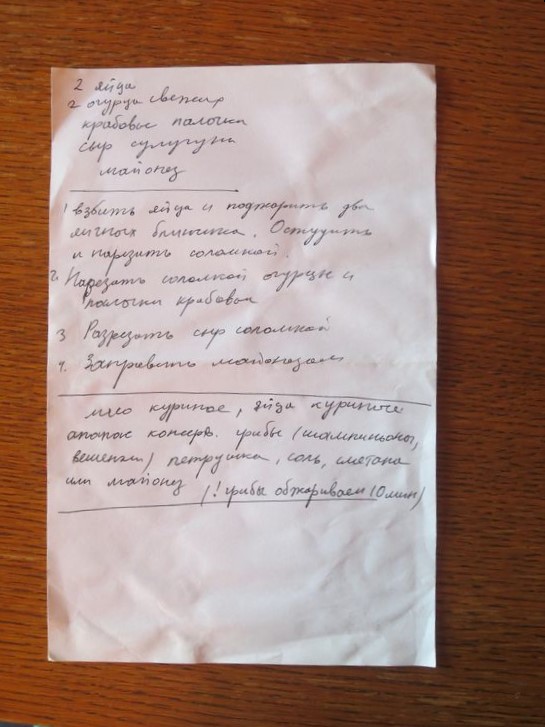 2 яйца
2 огурца свежих
крабовые палочки
сыр сулугуни
майонез
1 взбить яйца и поджарить два
яичных блинчика. Остудить
и нарезать соломкой.
2. Нарезать соломкой огурцы и
палочки крабовые
3 Разрезать сыр соломкой
4. Заправить майонезом
мясо куриное, яйца куриные
ананас консерв. грибы (шампиньоны,
вешенки) петрушка, соль, сметана
или майонез (! грибы обжариваем 10 мин)